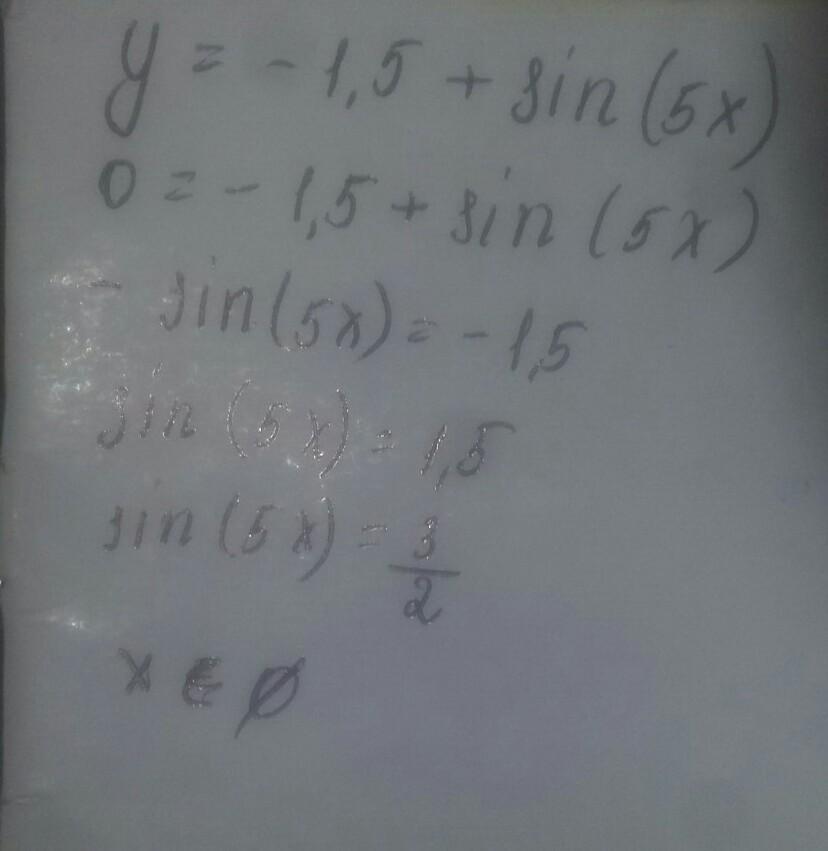 y = -1,5 + sin(5x)
0 = -1,5 + sin(5x)
- sin(5x) = -1,5
sin(5x) = 1,5
sin(5x) = 3/2
x ∈ ∅